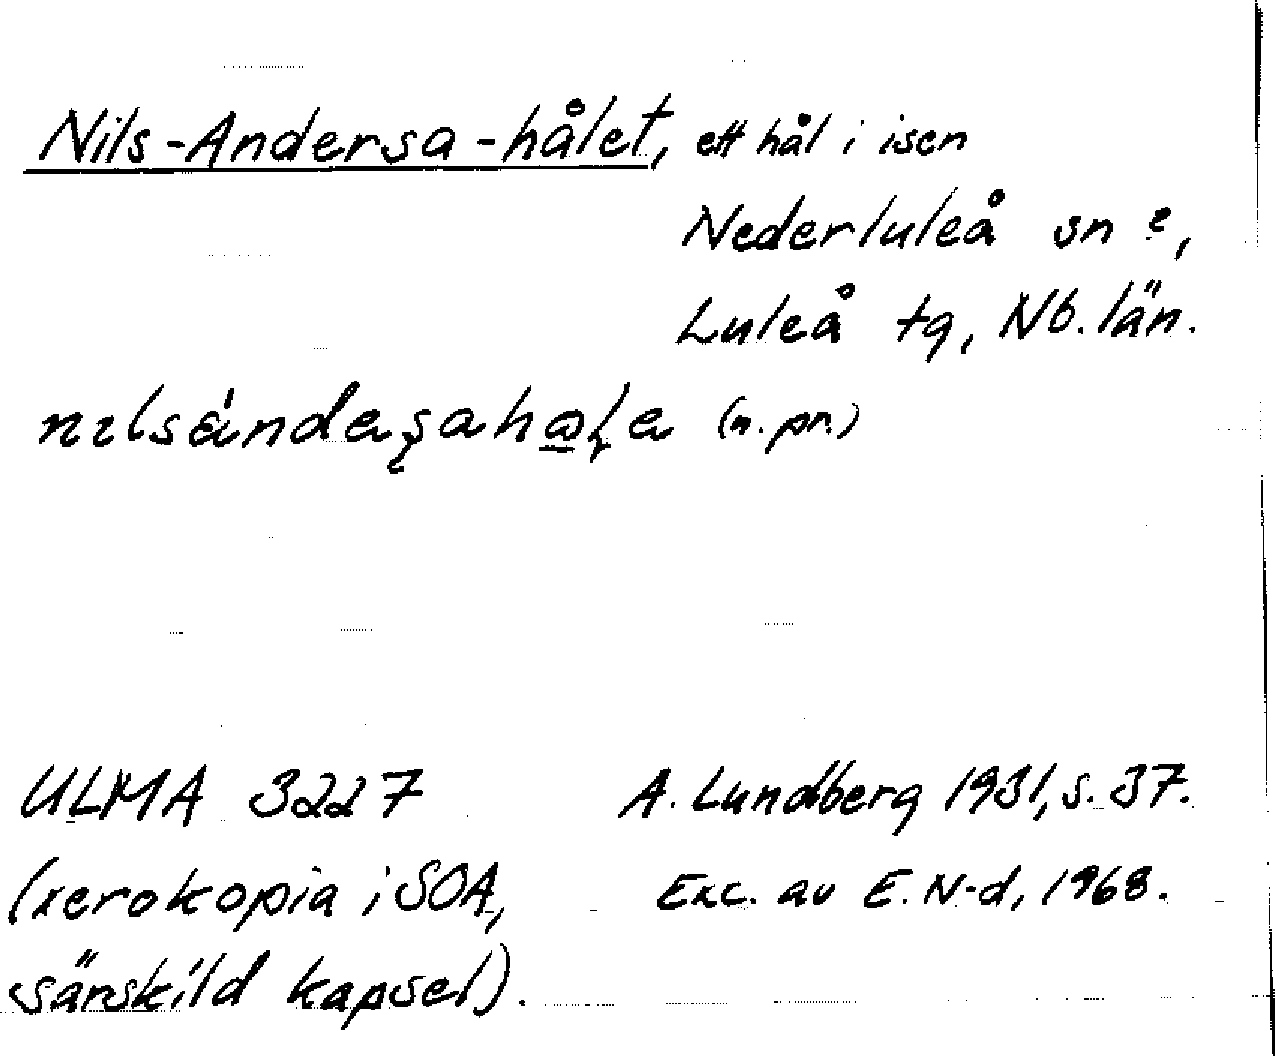 Nils-Andersa-hålet, ett hål i isen
Nederluleå sn ?,
Luleå tg, Nb. län.
(n. pr.)
ULMA 3227
A. Lundberg 1931, s. 37.
(xerokopia i SOA,
Exc. av E. N-d, 1968.
särskild kapsel).